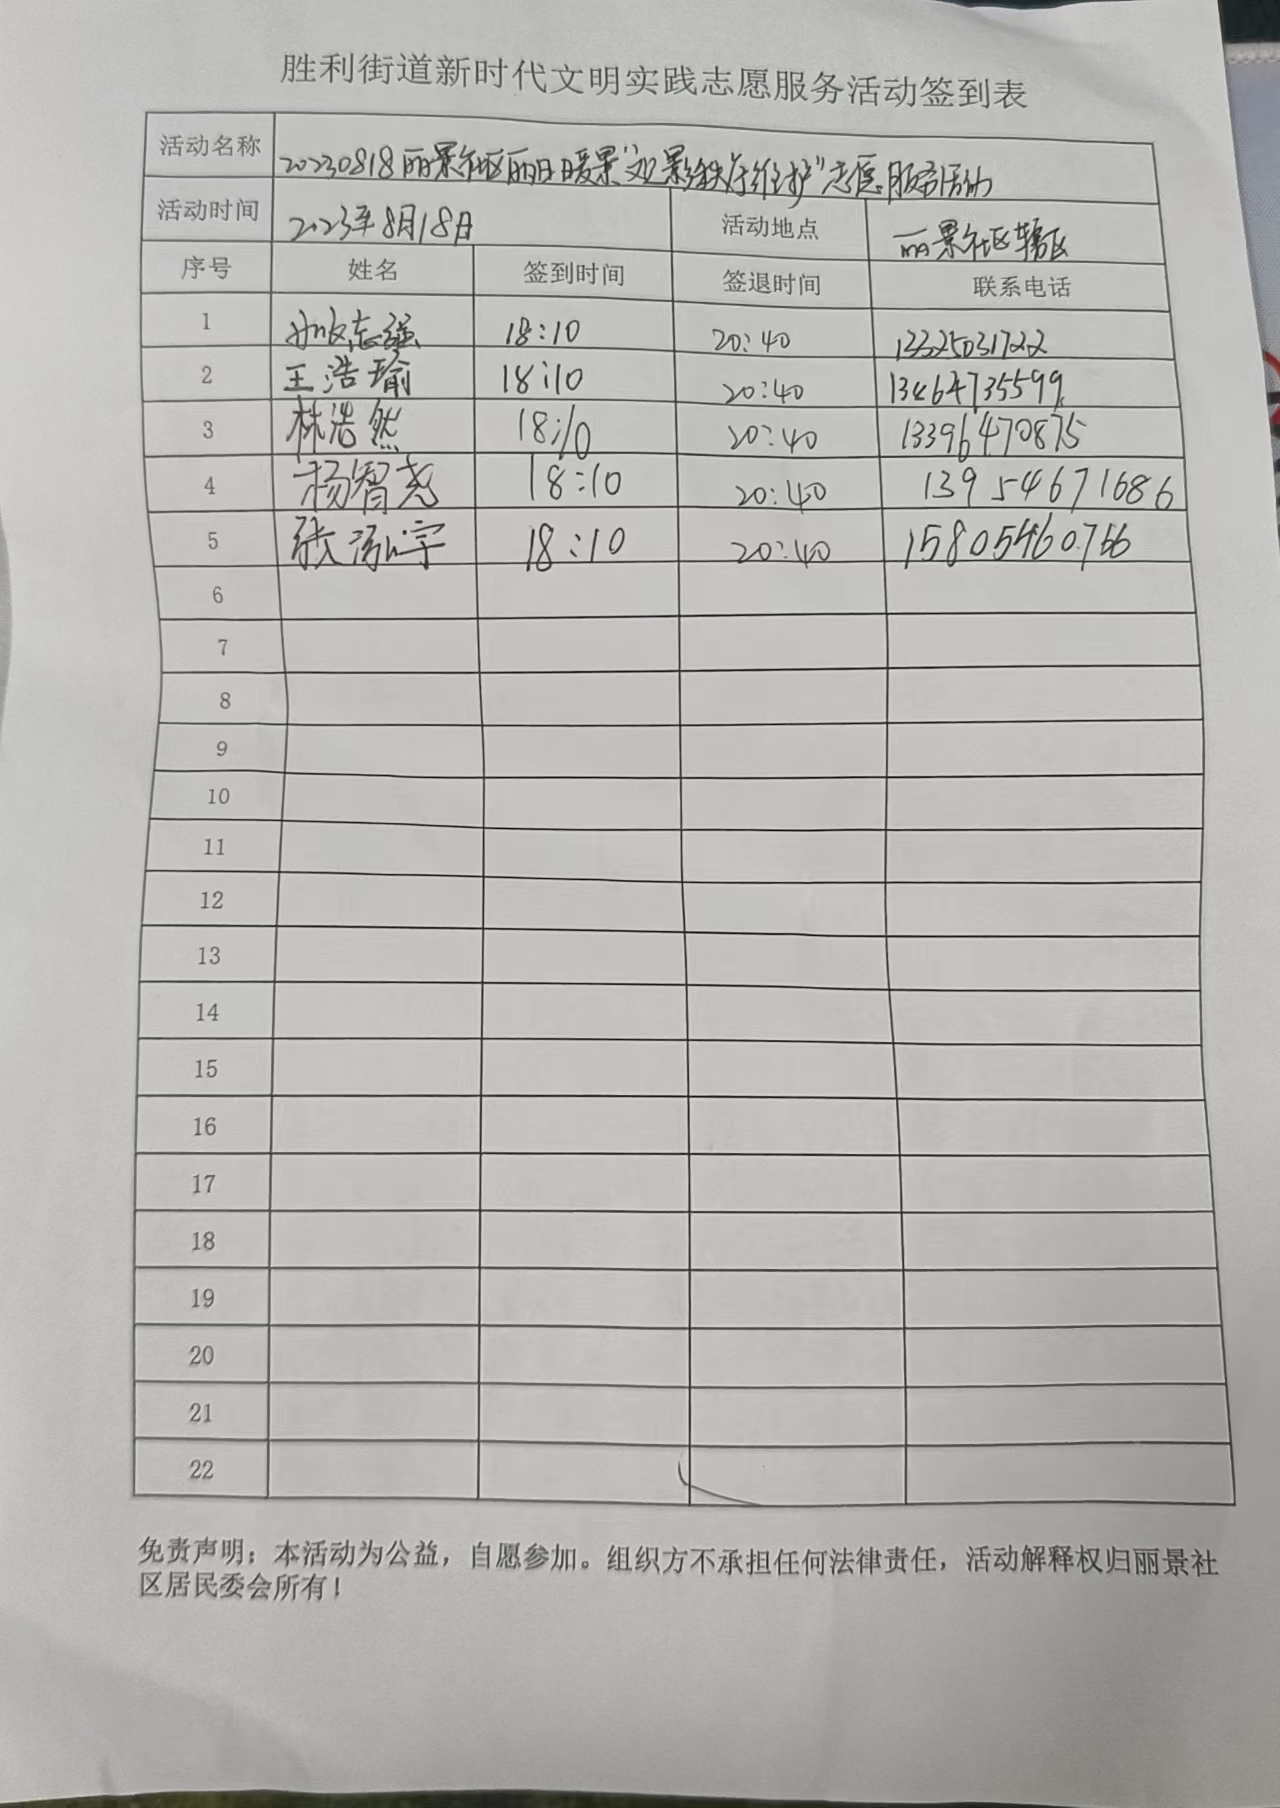 胜利街道新时代文明实践志愿服务活动签到表
活动名称 20230818丽景社区丽日暖景“观影秩序维护”志愿服务活动
活动时间 2023年8月18日 活动地点 丽景社区辖区
序号 姓名 签到时间 签退时间 联系电话
1 志强 18:10 20:40 13325031722
2 王浩瑜 18:10 20:40 13464735599
3 林浩然 18:10 20:40 13396470875
4 杨智尧 18:10 20:40 13954671686
5 张泓宇 18:10 20:40 15805460766
6
7
8
9
10
11
12
13
14
15
16
17
18
19
20
21
22
免责声明：本活动为公益，自愿参加。组织方不承担任何法律责任，活动解释权归丽景社
区居民委会所有！